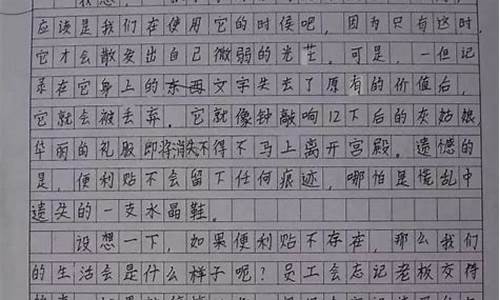 我想，
应该是我们在使用它的时侯吧，因为只有这时，
它才会散发出自己微弱的光芒。可是，一但记
录在它身上的东西文字失去了原有的价值后，
它就会被丢弃。它就像钟敲响12下后的灰姑娘
华丽的礼服即将消失不得不马上离开宫殿。遗憾的
是，便利贴不会留下任何痕迹，哪怕是慌乱中
遗失的一支水晶鞋。
设想一下，如果便利贴不存在，那么我们
的生活会是什么样子呢？员工会忘记老板交得